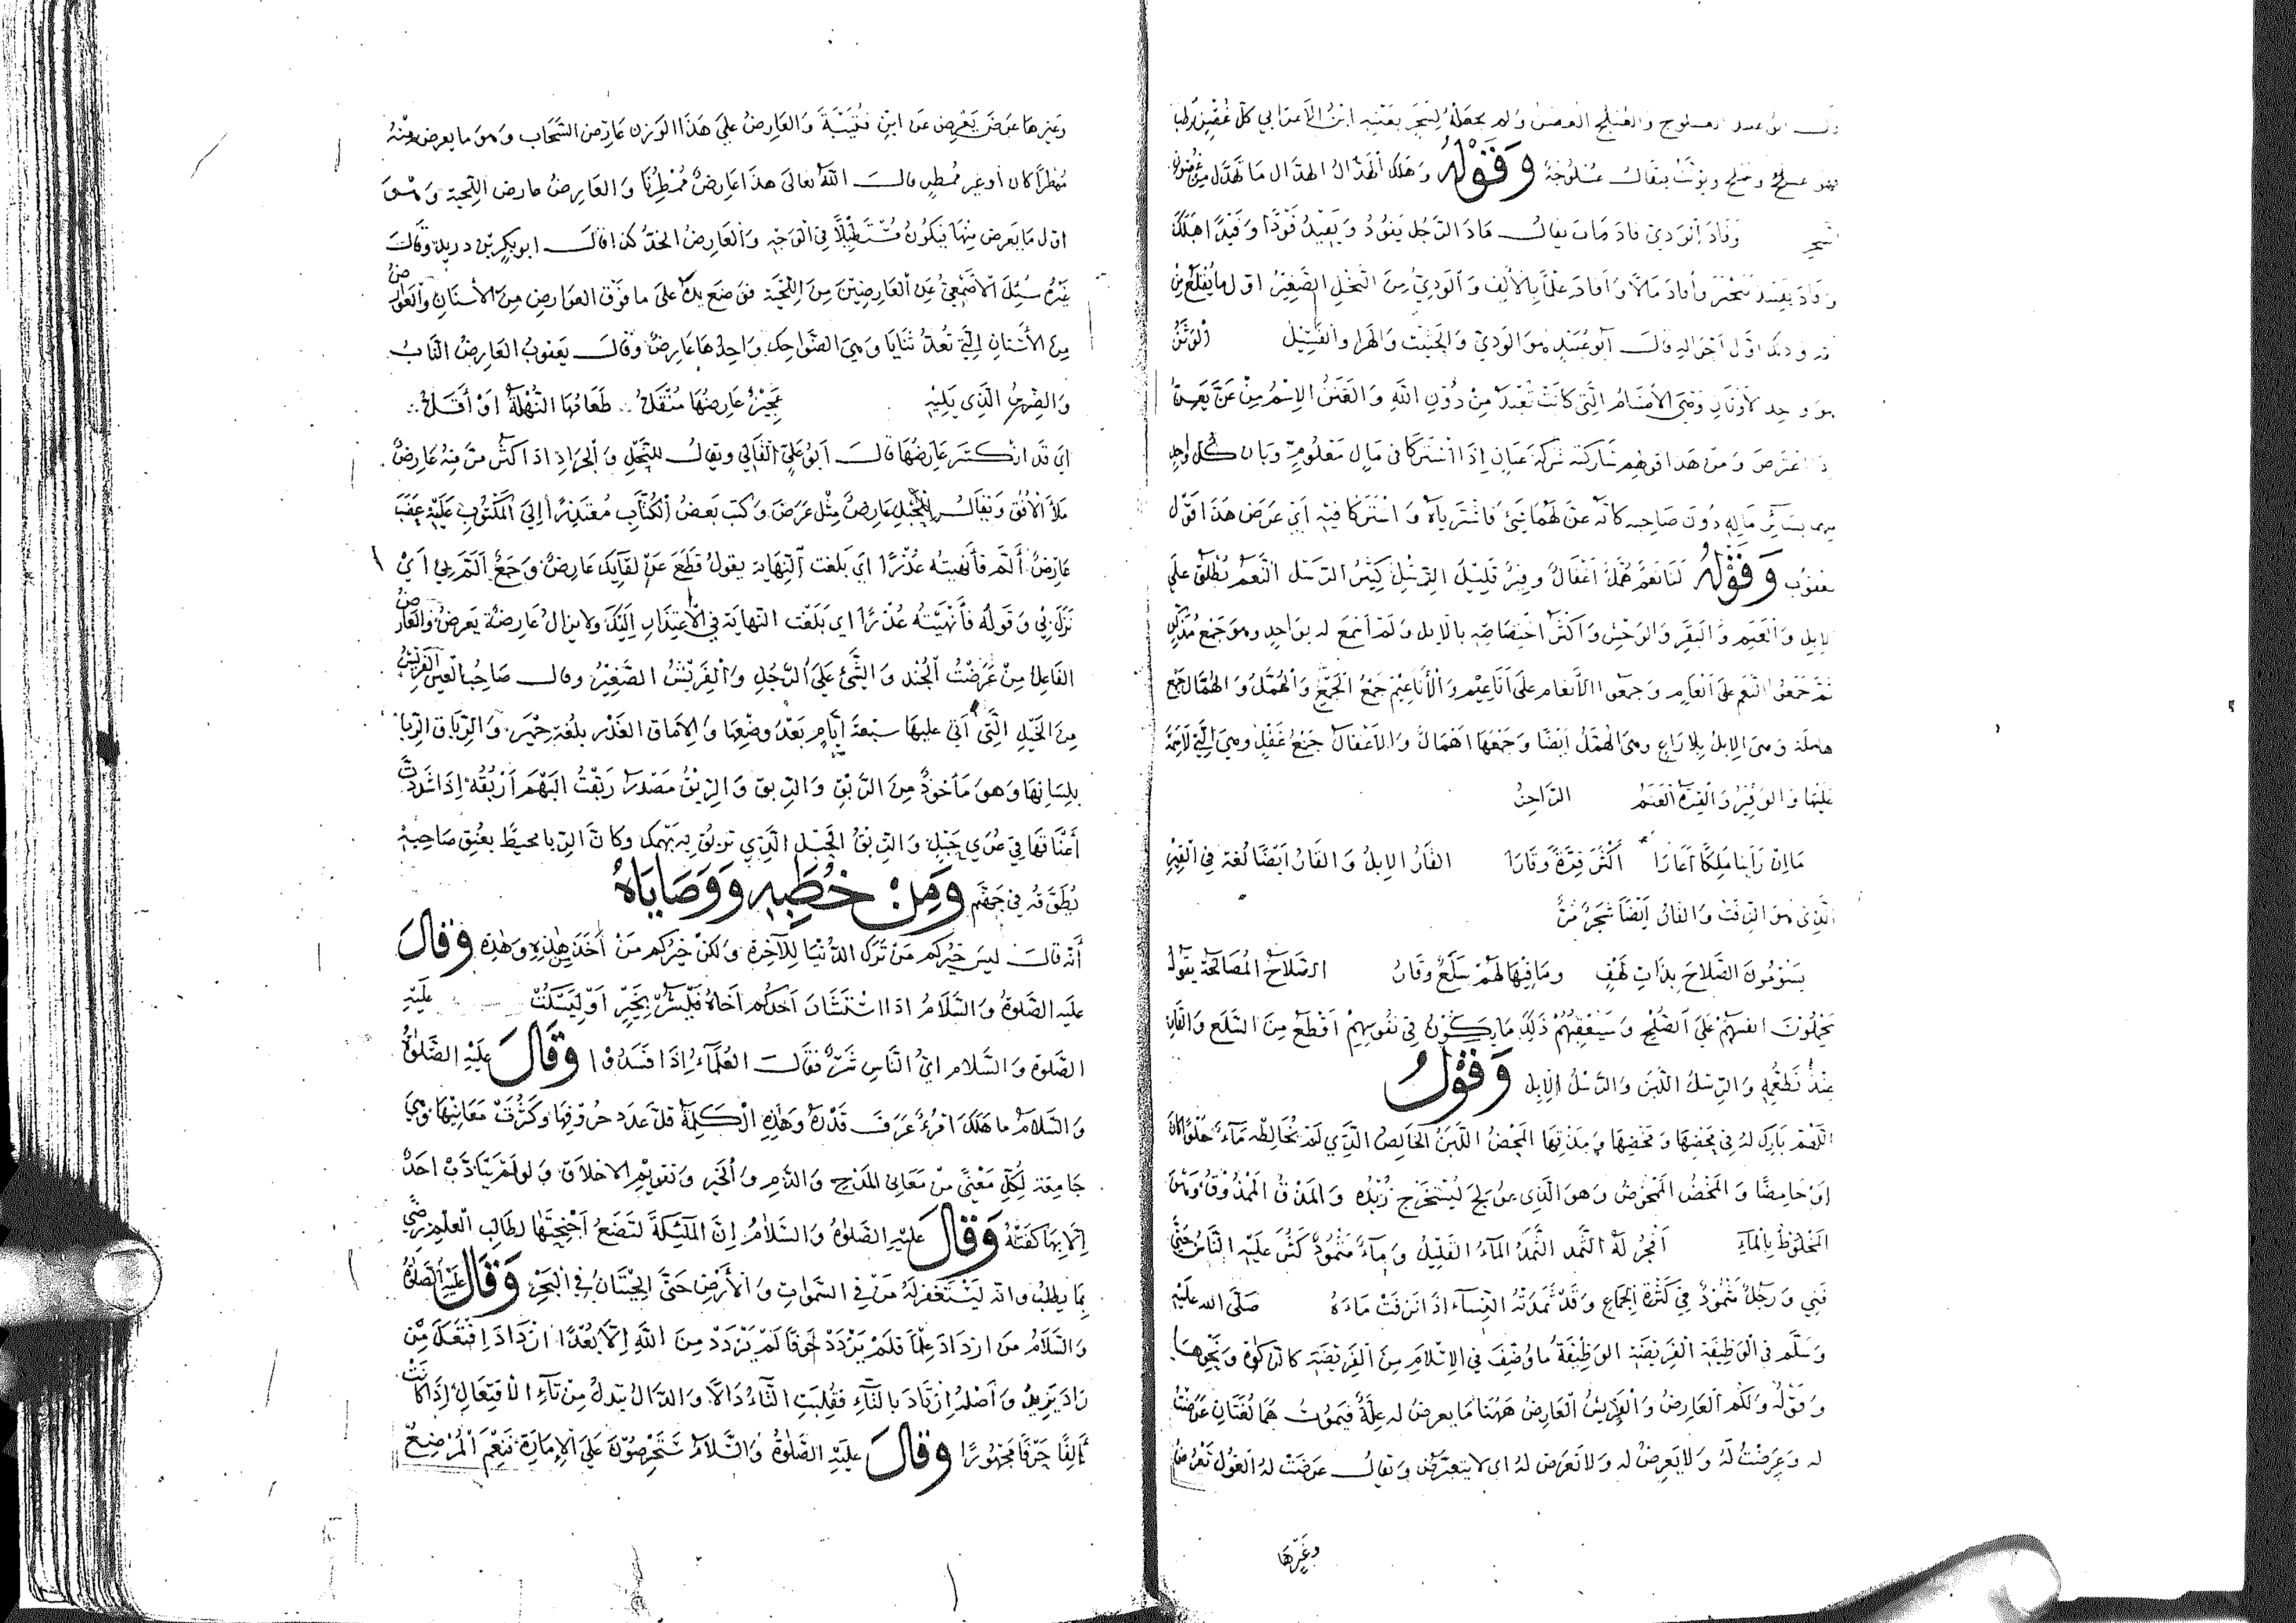 قال أبو عبيد العسلوج والعسلج الغصن ولم يجعله لشجر بعينه ابن الاعرابي كل غصن رطب
فهو عسلج وعسلج ويؤنث يقال عسلوجة وَقَوْلُهُ وَهَلَكَ الهَدَالُ الهدال ما تهدل من غصون
الشجر وَفَادَ الْوَدِيّ فاد مات يقال فاد الرَّجُل يَفُودُ وَيَفِيدُ فَوْدًا وَفَيْدًا هَلَكَ
وفاد يفيد تبختر وأفاد مالًا وأفاد علمًا بالألف وَالوَدِيُّ مِنَ النَّخْلِ الصَّغِيرُ اول ما يُقْلَعُ مِنْ
وذلك اوّل احواله قالَ أبو عُبَيْدٍ هو الوَدِيّ وَالجَثِيث وَالهراء والفَسِيل الْوَثَنُ
هو واحد الأوثان وَهِيَ الأصْنَامُ الَّتِي كَانَتْ تُعْبَدُ مِنْ دُوْنِ اللّهِ وَالعَنَنُ الاِسْمُ مِنْ عَنَّ يَعِنُّ
اذا اعترض وَمِن هذا قولهم شاركته شركة عنان إِذَا اشْتَركَا في مَالٍ مَعْلُومٍ وبان كل واحد
منهما بسائِر مَالِهِ دُونَ صَاحِبه كانه عنّ لهما شيْء فاشتَرياه وَاشْتَركَا فيه اي عرَض هَذَا قَوْل
يعقوب وَقَوْلُهُ لَنَا نَعَمٌ هُمَّلٌ اَغْفَالٌ وقِيرٌ قَلِيلُ الرِّسْلِ كَثِيرُ الرَّسَل النَّعَم يُطْلَقُ عَلَى
الابل وَالغَنَم وَالبَقَر وَالوَحْشِ وَاكثر اخْتِصَاصِه بالابل وَلَمْ اسْمَع له بوَاحدٍ وهو جَمعٌ مُذَكَّر
ثم جَمَعُوا النَّعَم على انْعَامٍ وَجمعُوا الأَنْعَام على أَنَاعِيْم وَالأَنَاعِيْمُ جَمْعُ الجَمْعِ وَالهُمَّلُ وَالهُمَّالُ جَمْع
هاملة وَهِيَ الابلُ بِلا رَاعٍ وهي الهَمَلُ ايضًا وَجَمْعُهَا اهْمَالٌ وَالاغفالُ جَمْعُ غُفْلٍ وهِيَ الَّتِي لَا سِمَةَ
عليْهَا وَالوقيرُ وَالقِرَةُ الغَنَمُ الرَّاجِزُ
مَا اِنْ رَأَيْنَا مَلِكًا اَغَارَا اَكْثَرَ مِنْهُ قِرَةً وَقَارَا القارُ الابلُ وَالقارُ ايضًا لُغة في القِيْر
الَّذِي هو الزِفتُ وَالقارُ اَيْضًا شَجَرٌ مُرٌّ
يَسُوْمُونَ الصَّلَاحَ بِذَاتِ كَهْفٍ ومَا فِيْهَا لَهُمْ سَلَعٌ وَقَارُ الصَّلَاحُ المُصَالحَة يَقُولُ
يَحْمِلُونَ انفسَهُمْ عَلَى الصُّلْحِ وَسَيُعقبُهُمْ ذَلِكَ مَا يَكُوْنُ فِي نُفُوسِهِمْ اَفْظَعَ مِنَ السَّلَع وَالقَارِ
عِنْدَ تَطَعُّمِهِ وَالرِّسْلُ اللَّبَن وَالرَّسَلُ الابل وَقَوْلُهُ
اللَّهُمَّ بَارِكْ لَهُ فِي مَحْضِهَا وَمَخْضِهَا وَمَذْقِهَا المَحْضُ اللَّبَنُ الخَالِصُ الَّذِي لَمْ يُخَالِطْه مَاءٌ حُلْوًا كان
اوْ حَامِضًا وَالمَخْضُ المَمْخُوضُ وَهوَ الَّذِي لِيُسْتَخْرَج زُبْدُه وَالمَذْقُ المَمْذُوقُ وَهُوَ
المَخْلُوطُ بِالمَاءِ اُفْجُرْ لَهُ الثَّمَد الثَّمَدُ المَاءُ القَلِيلُ وَمَاءٌ مَثْمُودٌ كَثُرَ عَلَيْهِ النَّاسُ حَتَّى
فَنِيَ وَرَجُلٌ مَثْمُودٌ فِي كَثْرَةِ الجِمَاعِ وَقَدْ ثَمَدَتْهُ النِّسَاءُ اِذَا نَزَفَتْ مَاءَهُ صَلَّى الله عَلَيْهِ
وَسَلَّم في الوَظِيفَة الفَرِيْضَة الوَظِيْفَةُ مَا وُظِّفَ فِي الاِسْلَامِ مِنَ الفَرِيْضَة كالزكوة وَنَحْوِهَا
وَقَوْلُهُ وَلَكُم العَارِضُ وَالْفَرِيْشُ العَارِضُ هَهُنَا مَا يعرضُ له عِلَّةٌ فَيَمُوْتُ هُمَا لُغَتَانِ عَرَضْتُ
له وَعَرِضْتُ لَهُ وَلا يَعْرِضُ له وَلا تَعْرَض لهُ اي لا يتعرَّضُ وَيقال عرَضَتْ لهُ الغُول تَعْرِضُ
وغيرها
وَغيرهَا عَرَضَ يَعْرِض عَن ابْنِ قُتَيْبَةَ وَالعَارِضُ عَلَى هَذَا الوَزن عَارِضُ السَّحَاب وَهو ما يعرض مِنْهُ
مُمْطِرًا كان أو غير مُمْطِرٍ قالَ اللّهُ تعالى هذا عَارِضٌ مُمْطِرُنَا وَالعَارِضُ عارض اللِّحية وَهُوَ
اوّل مَا يَعرض مِنْهَا فيكُونُ مُسْتَطِيْلًا فِي الوَجْهِ وَالعَارِضُ الخدُّ كذا قالَ ابو بكر بْن دريد وَقَالَ
غَيْرُهُ سُئِلَ الأَصْمَعِيُّ عَن العَارِضَيْنِ مِنَ اللِّحْيَة فوَضعَ يدهُ عَلَى ما فَوْقَ العوَارِضِ مِنَ الأَسنَانِ وَالعَوَارِضُ
مِنَ الأَسْنَانِ الَّتِي تُعَدُّ ثَنَايَا وَهِيَ الضَّوَاحِك وَاحِدُهَا عَارِضٌ وَقَالَ يَعقوبُ العَارِضُ النَّابُ
وَالضِّرْسُ الَّذِي يَلِيْهِ عَجِيْزٌ عَارِضُهَا مُنْفَلُّ طَعَامُهَا اللُّهْنَةُ اوْ أَقَلُّ
اَيْ قَد انْكَسَر عَارِضُهَا قالَ اَبُوْ عَلِيّ القَالِي وَيقالُ للنَّحْلِ وَالجَرَادِ اذَا كَثُرَ مَرَّ مِنْهُ عَارِضٌ
مَلأَ الأُفُقَ وَيُقالُ لِلجَبَلِ عَارِضٌ مِثْل عَرَض وَكتَبَ بَعضُ الكُتَّابِ مُعْتَذِرًا اِلَى المَكْتُوبِ عَلَيْهِ
عَارِضُ أَلَمٍ فأَنْهَيْتُهُ عُذْرًا اي بَلَغْت النِّهَاية يقولُ قَطَعَ عَنْ لِقَائِكَ عَارِضُ وَجَعٍ اَلَمَّ بِي اَيْ
نَزَلَ بِي وَقَولُه فَأَنْهَيْتُهُ عُذْرًا اي بَلَغْت النهايَة في الاعْتِذَارِ اِلَيْكَ وَلا يزالُ عَارِضَةٌ يَعرضُ وَالعَارِضُ
الفَاعِلُ مِنْ عَرَضْتُ الجُنْد وَالشَّيْءَ عَلَى الرَّجُلِ وَالْفَرِيْشُ الصَّغِيْرُ وقال صَاحِبُ العين الفَرِيشُ
مِنَ الخَيْلِ الَّتِي أَتَى عليهَا سَبْعَة أَيَّامٍ بَعْدَ وضْعِهَا وَالاِمَاق الغَدْر بلُغَة حِمْيَر وَالرِّبَاق الرِّبَا
بِلِسَانِهَا وَهوَ مَأخوذٌ مِنَ الرَّبْقِ وَالرِّبْقِ وَالرَّبْقُ مَصْدَرُ رَبَقْتُ البَهْمَ اَرْبُقُهُ اِذَا شَدَدْتَ
أَعْنَاقَهَا فِي عُرَى حَبْلٍ وَالرِّبْقُ الحَبْل الَّذِي تربُق بِهِ بَهْمَكَ وكانَّ الرِّبا محيطٌ بعُنُق صَاحِبِهِ
يُطَوَّقُهُ فِي جَهَنَّم وَمِنْ خُطَبِهِ وَوَصَايَاهُ
أَنّه قالَ ليسَ خَيْركم مَنْ تَرَك الدُّنْيَا لِلآخِرَةِ وَلكنْ خَيْرُكم مَنْ أَخَذَ مِنْ هَذِهِ وَهٰذِهِ وَقَالَ
عليه الصَّلوةُ وَالسَّلَامُ اذَا اسْتَشَارَ اَحَدُكم اَخَاهُ فَلْيُشِرْ بِخَيْرٍ اَوْ لِيَسْكُتْ عَلَيْهِ
الصَّلوة وَالسَّلام ايُّ النَّاسِ شَرٌّ فقَالَ العُلَمَاءُ اِذَا فَسَدُوْا وَقَالَ عَلَيْهِ الصَّلوةُ
وَالسَّلَامُ ما هَلَكَ امْرُءٌ عَرَفَ قَدْرَهُ وَهٰذِهِ الكَلِمَةُ قلَّ عَدَدُ حُرُوْفِهَا وَكَثُرَتْ مَعَانِيْهَا وَهِيَ
جَامِعَة لِكُلِّ مَعْنًى مِنْ مَعَانِي المَدْحِ وَالذَّمِ وَالخَيْرِ وَتقويْمِ الاخلَاقِ وَلو لَمْ يَتَأَدَّبْ اَحَدٌ
اِلَّا بِهَا كَفَتْهُ وَقَالَ عَلَيْهِ الصَّلٰوةُ وَالسَّلَامُ اِنَّ المَلٰئِكَةَ لَتَضَعُ اَجْنِحَتَهَا لطَالِبِ العِلْمِ رِضًى
بِمَا يطلُبُ وَانّه لَيَسْتَغْفِرُ لَهُ مَنْ فِي السَّمٰوَاتِ وَالاَرْضِ حَتَّى الحِيْتَانُ فِي البَحْرِ وَقَالَ عَلَيْهِ الصَّلٰوةُ
وَالسَّلَامُ مَن ازدَادَ عِلْمًا فَلَمْ يَزْدَدْ خَوْفًا لَمْ يَزْدَدْ مِنَ اللّهِ اِلَّا بُعْدًا ازْدَادَ اِفْتَعَلَ مِنْ
زَادَ يَزِيدُ وَأَصْلُهُ اِزْتَادَ بالتَّاءِ فقُلِبَتِ التَّاءُ دَالًا وَالدَّالُ تبدلُ مِنْ تَاءِ الاِفتعَالِ اِذَا كَانَتْ
حَرْفًا مَجْهُورًا وَقَالَ عليْهِ الصَّلَوةُ وَالسَّلَامُ سَتَحْرِصُوْنَ عَلَى الاِمَارَةِ فَنِعْمَ المُرْضِعُ